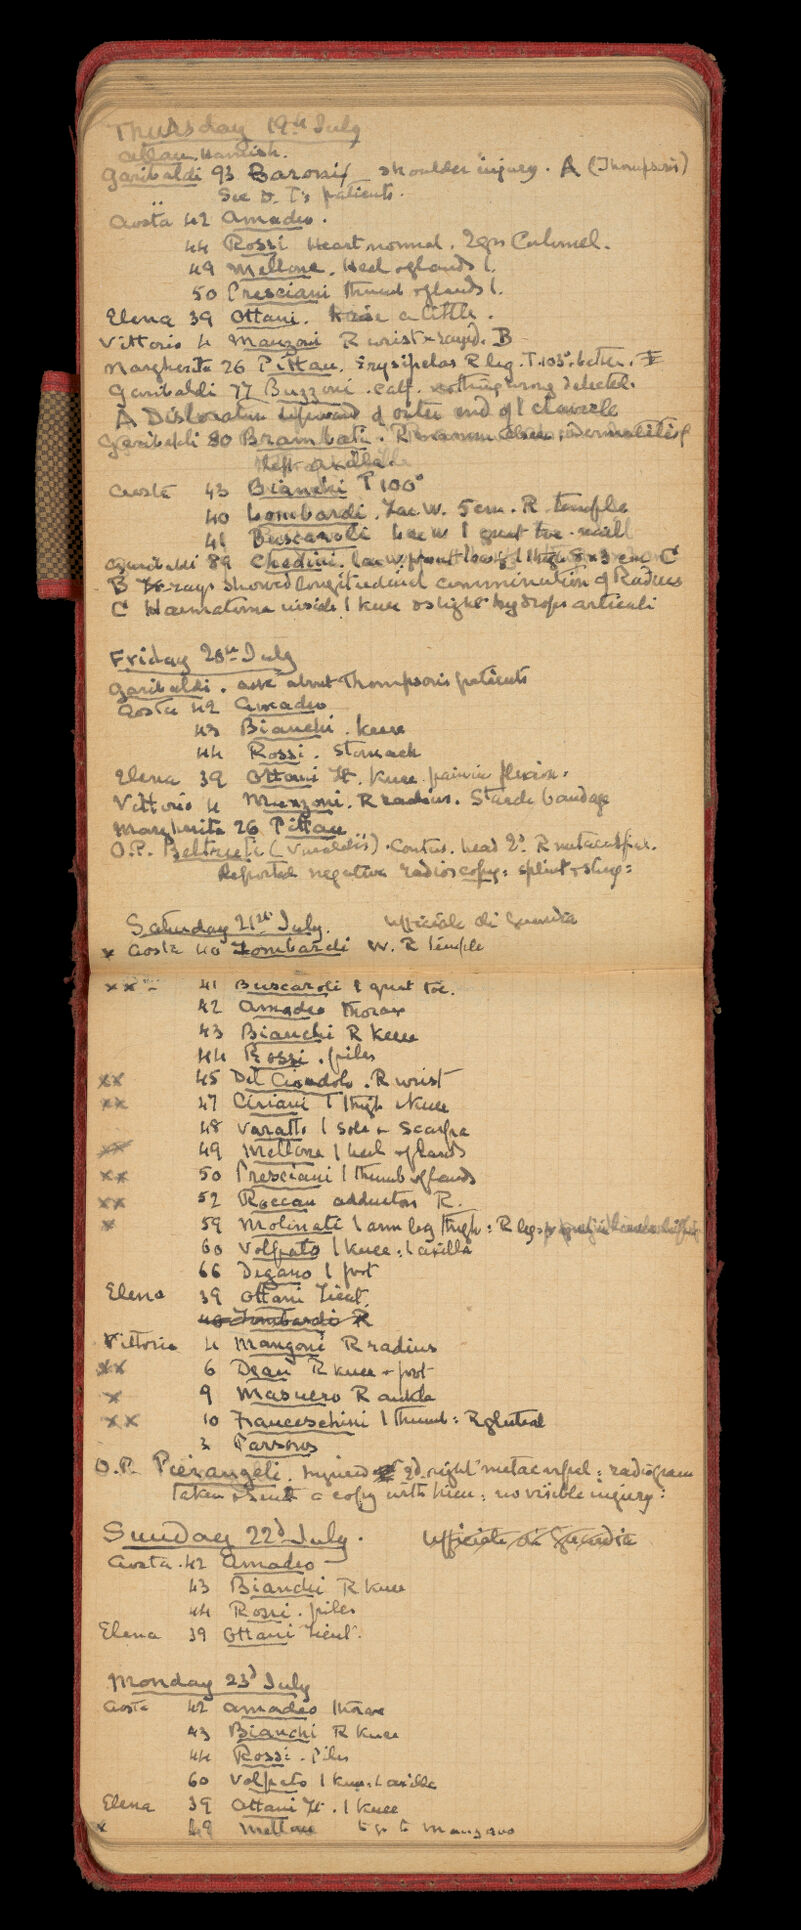 Thursday 19th July
Garibaldi 93 Baroni shoulder injury. A (Thompson's)
" See D. T's patients.
Aosta 42 Amadeo.
44 Rossi Heart normal. 2grs Calomel.
49 Mellone. Heel & glands l.
50 Presciani thumb & glands l.
Elena 39 Ottani. a little.
Vittorio 4 Manzoni R wrist x-rayed. B
Margherita 26 Pittau. Erysipelas R leg. T.103°. better.
Garibaldi 77 Buzzoni. calf. nothing wrong detected.
A Dislocation of outer end of l clavicle
Garibaldi 80 Brambati. R
left axilla.
Aosta 43 Bianchi T 100°
40 Lombardi. Lac W. 5cm. R. temple
41 Buscaroli Lac W l great toe. nail
Garibaldi 89 Chedini. lac w. front l thigh 8x3 cm C
B X-rays showed longitudinal comminution of Radius
C Haematoma inside l knee & slight hydrops articuli
Friday 20th July
Garibaldi. ask about Thompson's patients
Aosta 42 Amadeo
43 Bianchi. knee
44 Rossi. Stomach
Elena 39 Ottani Lt. knee. pain in flexion.
Vittorio 4 Manzoni. R radius. Starch bandage
Margherita 26 Pittau
O.P. Beltrueti . Contus. head 2d. R metacarpus.
Reported negative radioscopy: splint & sling:
Saturday 21st July. Ufficiale di Guardia
x Aosta 40 Lombardi W. R temple
xx - 41 Buscaroli l great toe.
42 Amadeo thorax
43 Bianchi R knee
44 Rossi. piles
xx 45 Del Ciondolo. R wrist
xx 47 Ciriani l thigh & knee
48 Varatto l sole & Scarpa
xx 49 Mellone l heel & glands
xx 50 Presciani l thumb & glands
xx 52 Roccau adductors R.
x 59 Molinati l arm leg thigh: R leg
60 Volpato l knee: l axilla
66 Degano l foot
Elena 39 Ottani Lieut.
40 Lombardi R
Vittorio 4 Mangoni R radius
xx 6 Deau R knee & foot
x 9 Masuero R ankle
xx 10 Franceschini l thumb: R gluteal
3 Parsons
O.P. Pierangeli. Injured 2d right metacarpal: radiogram
taken & sent a copy with him: no visible injury:
Sunday 22d July. Ufficiale di Guardia
Aosta. 42 Amadeo
43 Bianchi R knee
44 Rossi. piles
Elena 39 Ottani Lieut.
Monday 23d July
Aosta 42 Amadeo thorax
43 Bianchi R knee
44 Rossi. Piles
60 Volpato l knee. l axilla
Elena 39 Ottani Lt. l knee
x 49 Mellone to go to Manzano